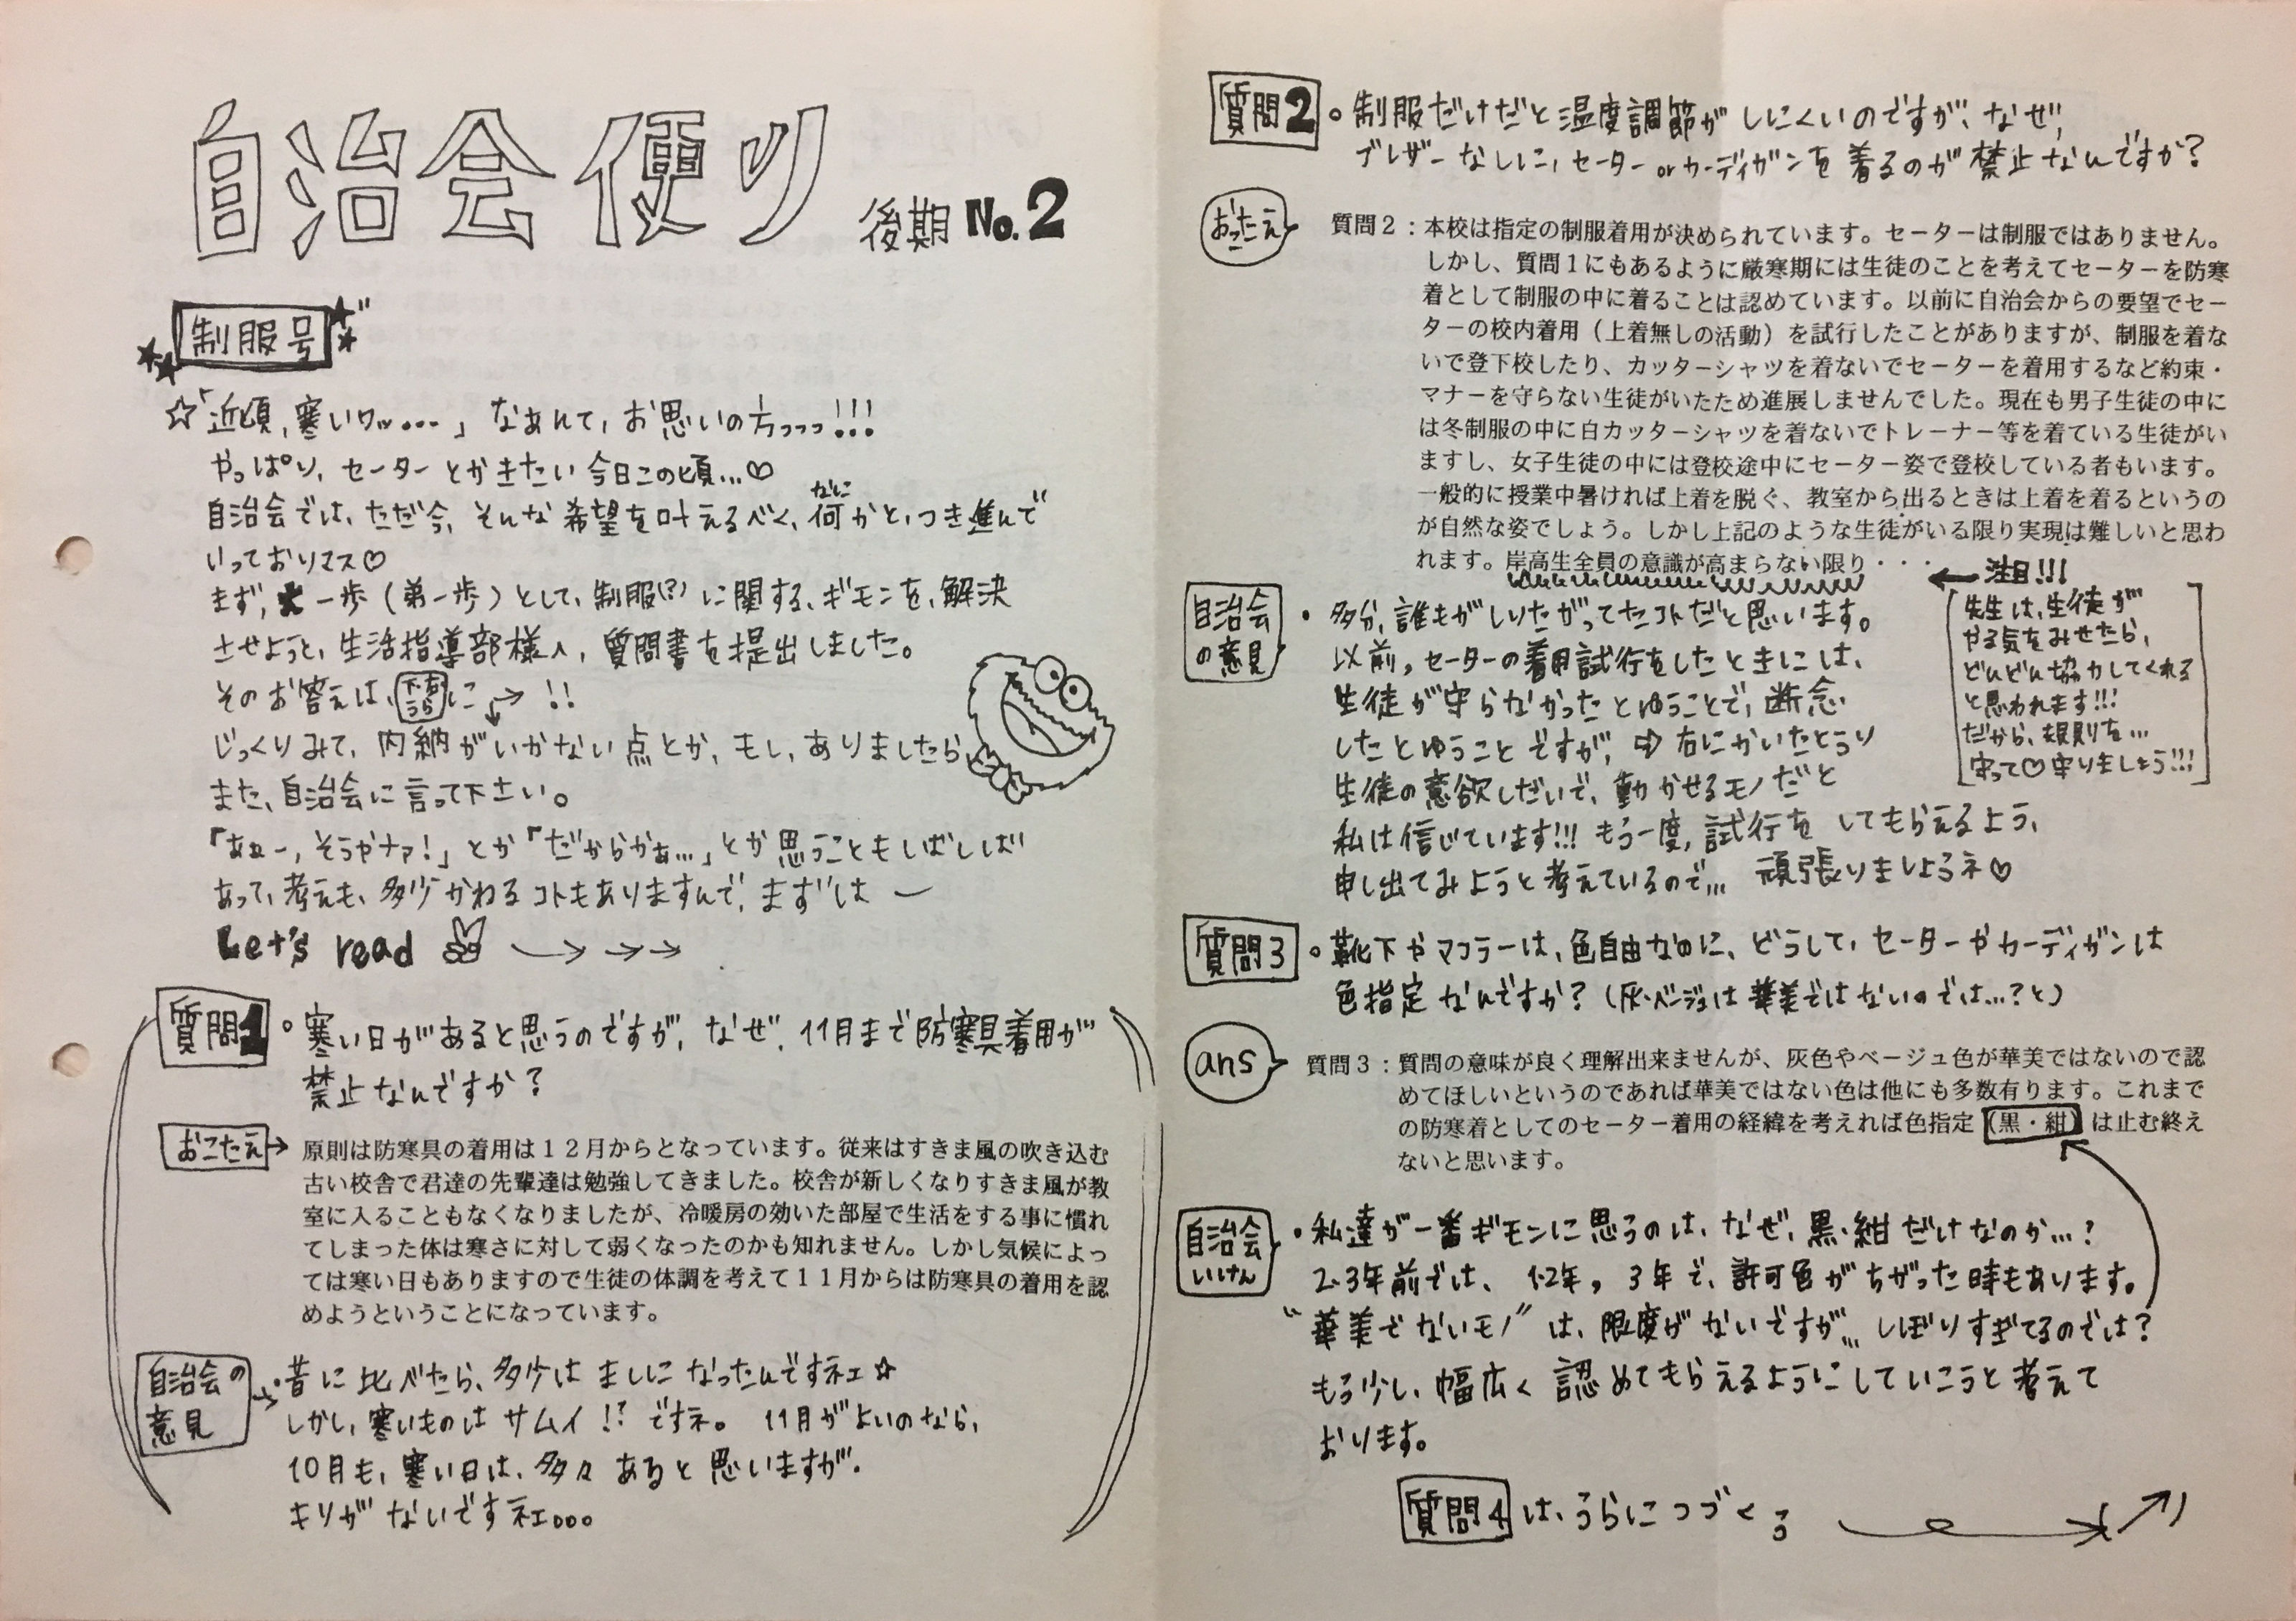 自治会便り 後期 No.2
制服号
☆「近頃、寒いワッ…」なあんて、お思いの方っっっ!!!
やっぱり、セーターとかきたい今日この頃…♡
自治会では、ただ今、そんな希望を叶えるべく、何かと、つき進んで
なに
いっておりマス♡
まず、一歩(第一歩)として、制服(?)に関する、ギモンを、解決
させようと、生活指導部様へ、質問書を提出しました。
そのお答えは、下右うらに→!!
じっくりみて、内納がいかない点とか、もし、ありましたら、
また、自治会に言って下さい。
「あぁー、そうやナァ!」とか「だからかぁ…」とか思うこともしばしば
あって、考えも、多少かわるコトもありますんで、まずは ー
Let's read →→→
質問1 ○寒い日があると思うのですが、なぜ、11月まで防寒具着用が
禁止なんですか?
おこたえ→ 原則は防寒具の着用は12月からとなっています。従来はすきま風の吹き込む
古い校舎で君達の先輩達は勉強してきました。校舎が新しくなりすきま風が教
室に入ることもなくなりましたが、冷暖房の効いた部屋で生活をする事に慣れ
てしまった体は寒さに対して弱くなったのかも知れません。しかし気候によっ
ては寒い日もありますので生徒の体調を考えて11月からは防寒具の着用を認
めようということになっています。
自治会の意見→・昔に比べたら、多少は ましに なったんですネェ☆
しかし、寒いものは サムイ!? ですネ。 11月がよいのなら、
10月も、寒い日は、多々 あると 思いますが。
キリが ないですネェ。。。
質問2 ○制服だけだと温度調節が しにくいのですが、なぜ、
ブレザーなしに、セーター or カーディガンを 着るのが 禁止なんですか?
おこたえ 質問2:本校は指定の制服着用が決められています。セーターは制服ではありません。
しかし、質問1にもあるように厳寒期には生徒のことを考えてセーターを防寒
着として制服の中に着ることは認めています。以前に自治会からの要望でセー
ターの校内着用(上着無しの活動)を試行したことがありますが、制服を着な
いで登下校したり、カッターシャツを着ないでセーターを着用するなど約束・
マナーを守らない生徒がいたため進展しませんでした。現在も男子生徒の中に
は冬制服の中に白カッターシャツを着ないでトレーナー等を着ている生徒がい
ますし、女子生徒の中には登校途中にセーター姿で登校している者もいます。
一般的に授業中暑ければ上着を脱ぐ、教室から出るときは上着を着るというの
が自然な姿でしょう。しかし上記のような生徒がいる限り実現は難しいと思わ
れます。岸高生全員の意識が高まらない限り・・・ ←注目!!!
自治会の意見 ・多分、誰もがしりたがってたコトだと思います。
以前、セーターの着用試行をしたときには、
生徒が守らなかったとゆうことで、断念
したとゆうことですが、⇨右にかいたとうり
生徒の意欲しだいで、動かせるモノだと
私は信じています!!! もう一度、試行を してもらえるよう、
申し出てみようと考えているので… 頑張りましょうネ♡
先生は、生徒が
やる気をみせたら、
どんどん協力してくれる
と思われます!!!
だから、規則を…
守って♡守りましょう!!!
質問3 ○靴下やマフラーは、色自由なのに、どうして、セーターやカーディガンは
色指定なんですか?(灰・ベージュは華美ではないのでは…?と)
ans 質問3:質問の意味が良く理解出来ませんが、灰色やベージュ色が華美ではないので認
めてほしいというのであれば華美ではない色は他にも多数有ります。これまで
の防寒着としてのセーター着用の経緯を考えれば色指定(黒・紺)は止む終え
ないと思います。
自治会いけん ・私達が一番ギモンに思うのは、なぜ、黒・紺だけなのか…?
2・3年前では、1・2年、3年で、許可色がちがった時もあります。
“華美でないモノ”は、限度がないですが… しぼりすぎてるのでは?
もう少し、幅広く 認めてもらえるようにしていこうと考えて
おります。
質問4は、うらにつづくぅ